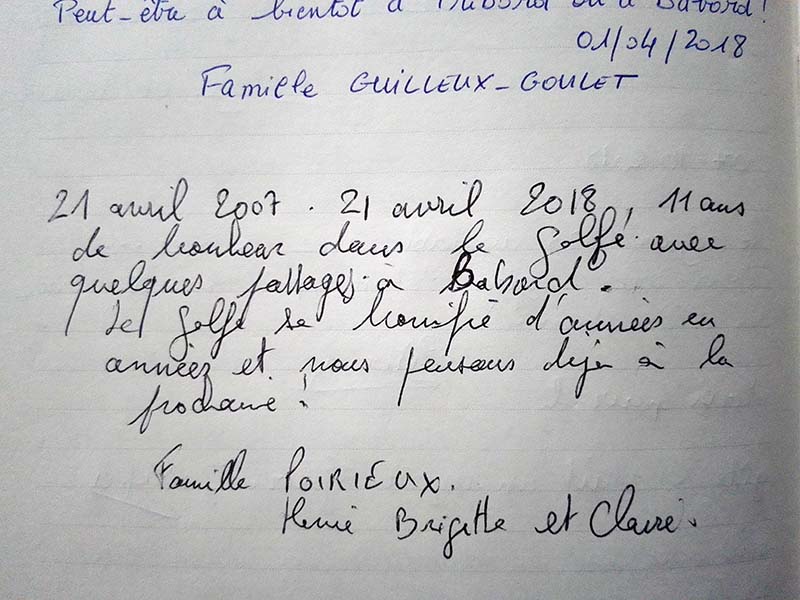 Peut-être à bientôt à Babord ou à Babord!
01/04/2018
Famille GUILLEUX-GOULET
21 avril 2007. 21 avril 2018, 11 ans
de bonheur dans le golfe avec
quelques passages à Babord.
Le golfe se bonifie d'années en
années et nous pensons déja à la
prochaine!
Famille POIRIEUX.
Hervé Brigitte et Claire.